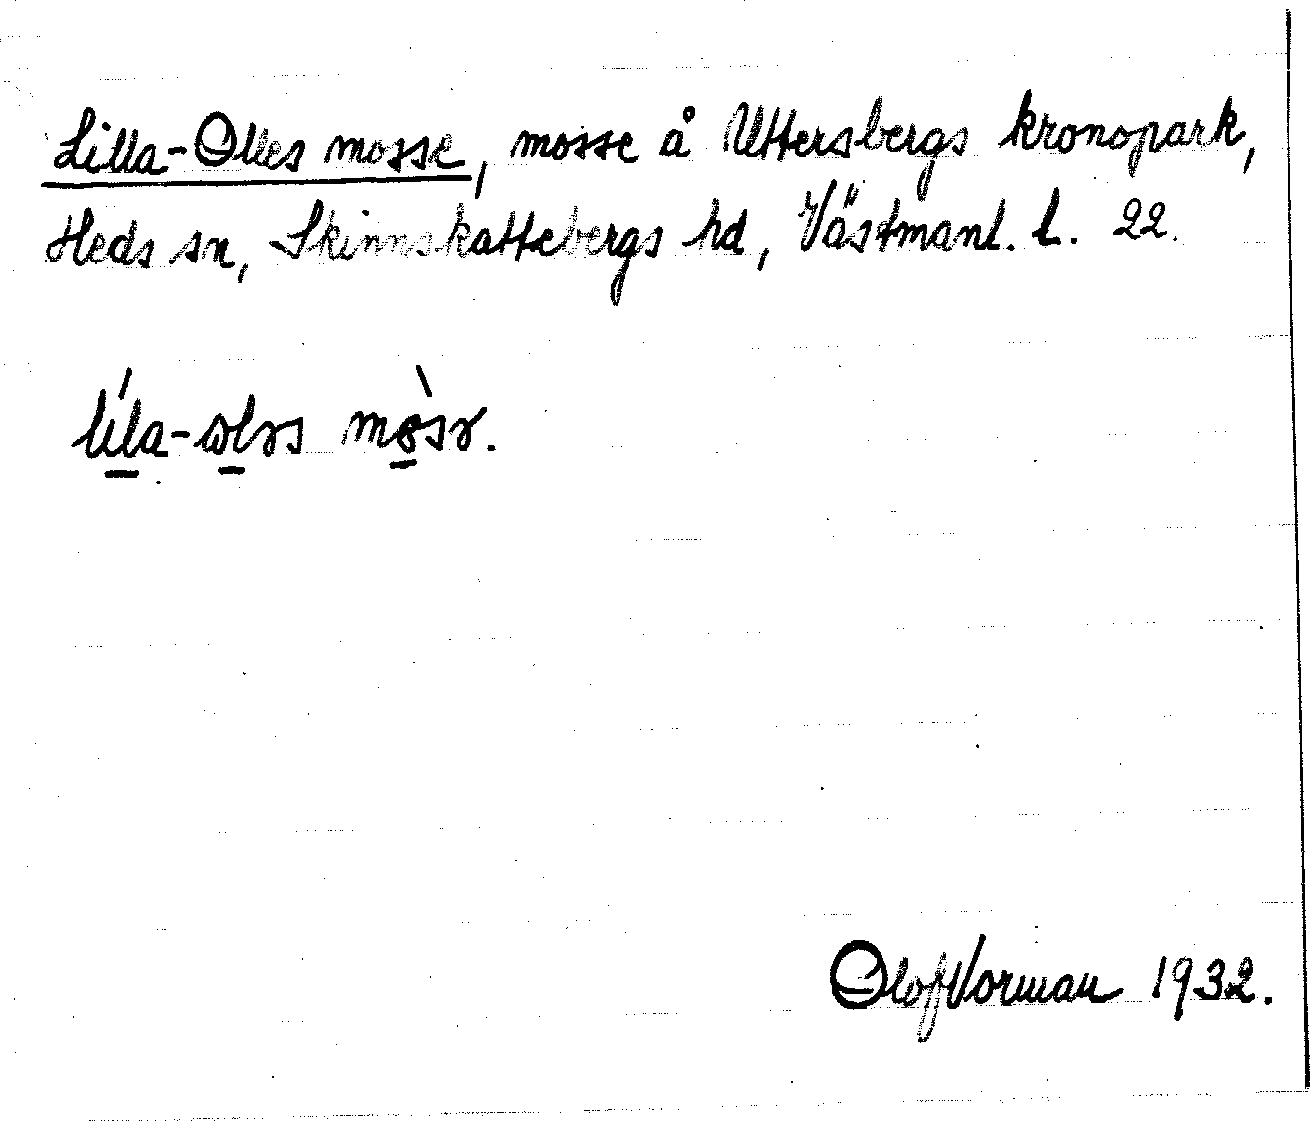 Lilla-Olles mosse, mosse å Uttersbergs kronopark,
Heds sn, Skinnskattebergs hd, Västmanl. l. 22.
líla-olɤs mòsɤ.
Olof Vorman 1932.